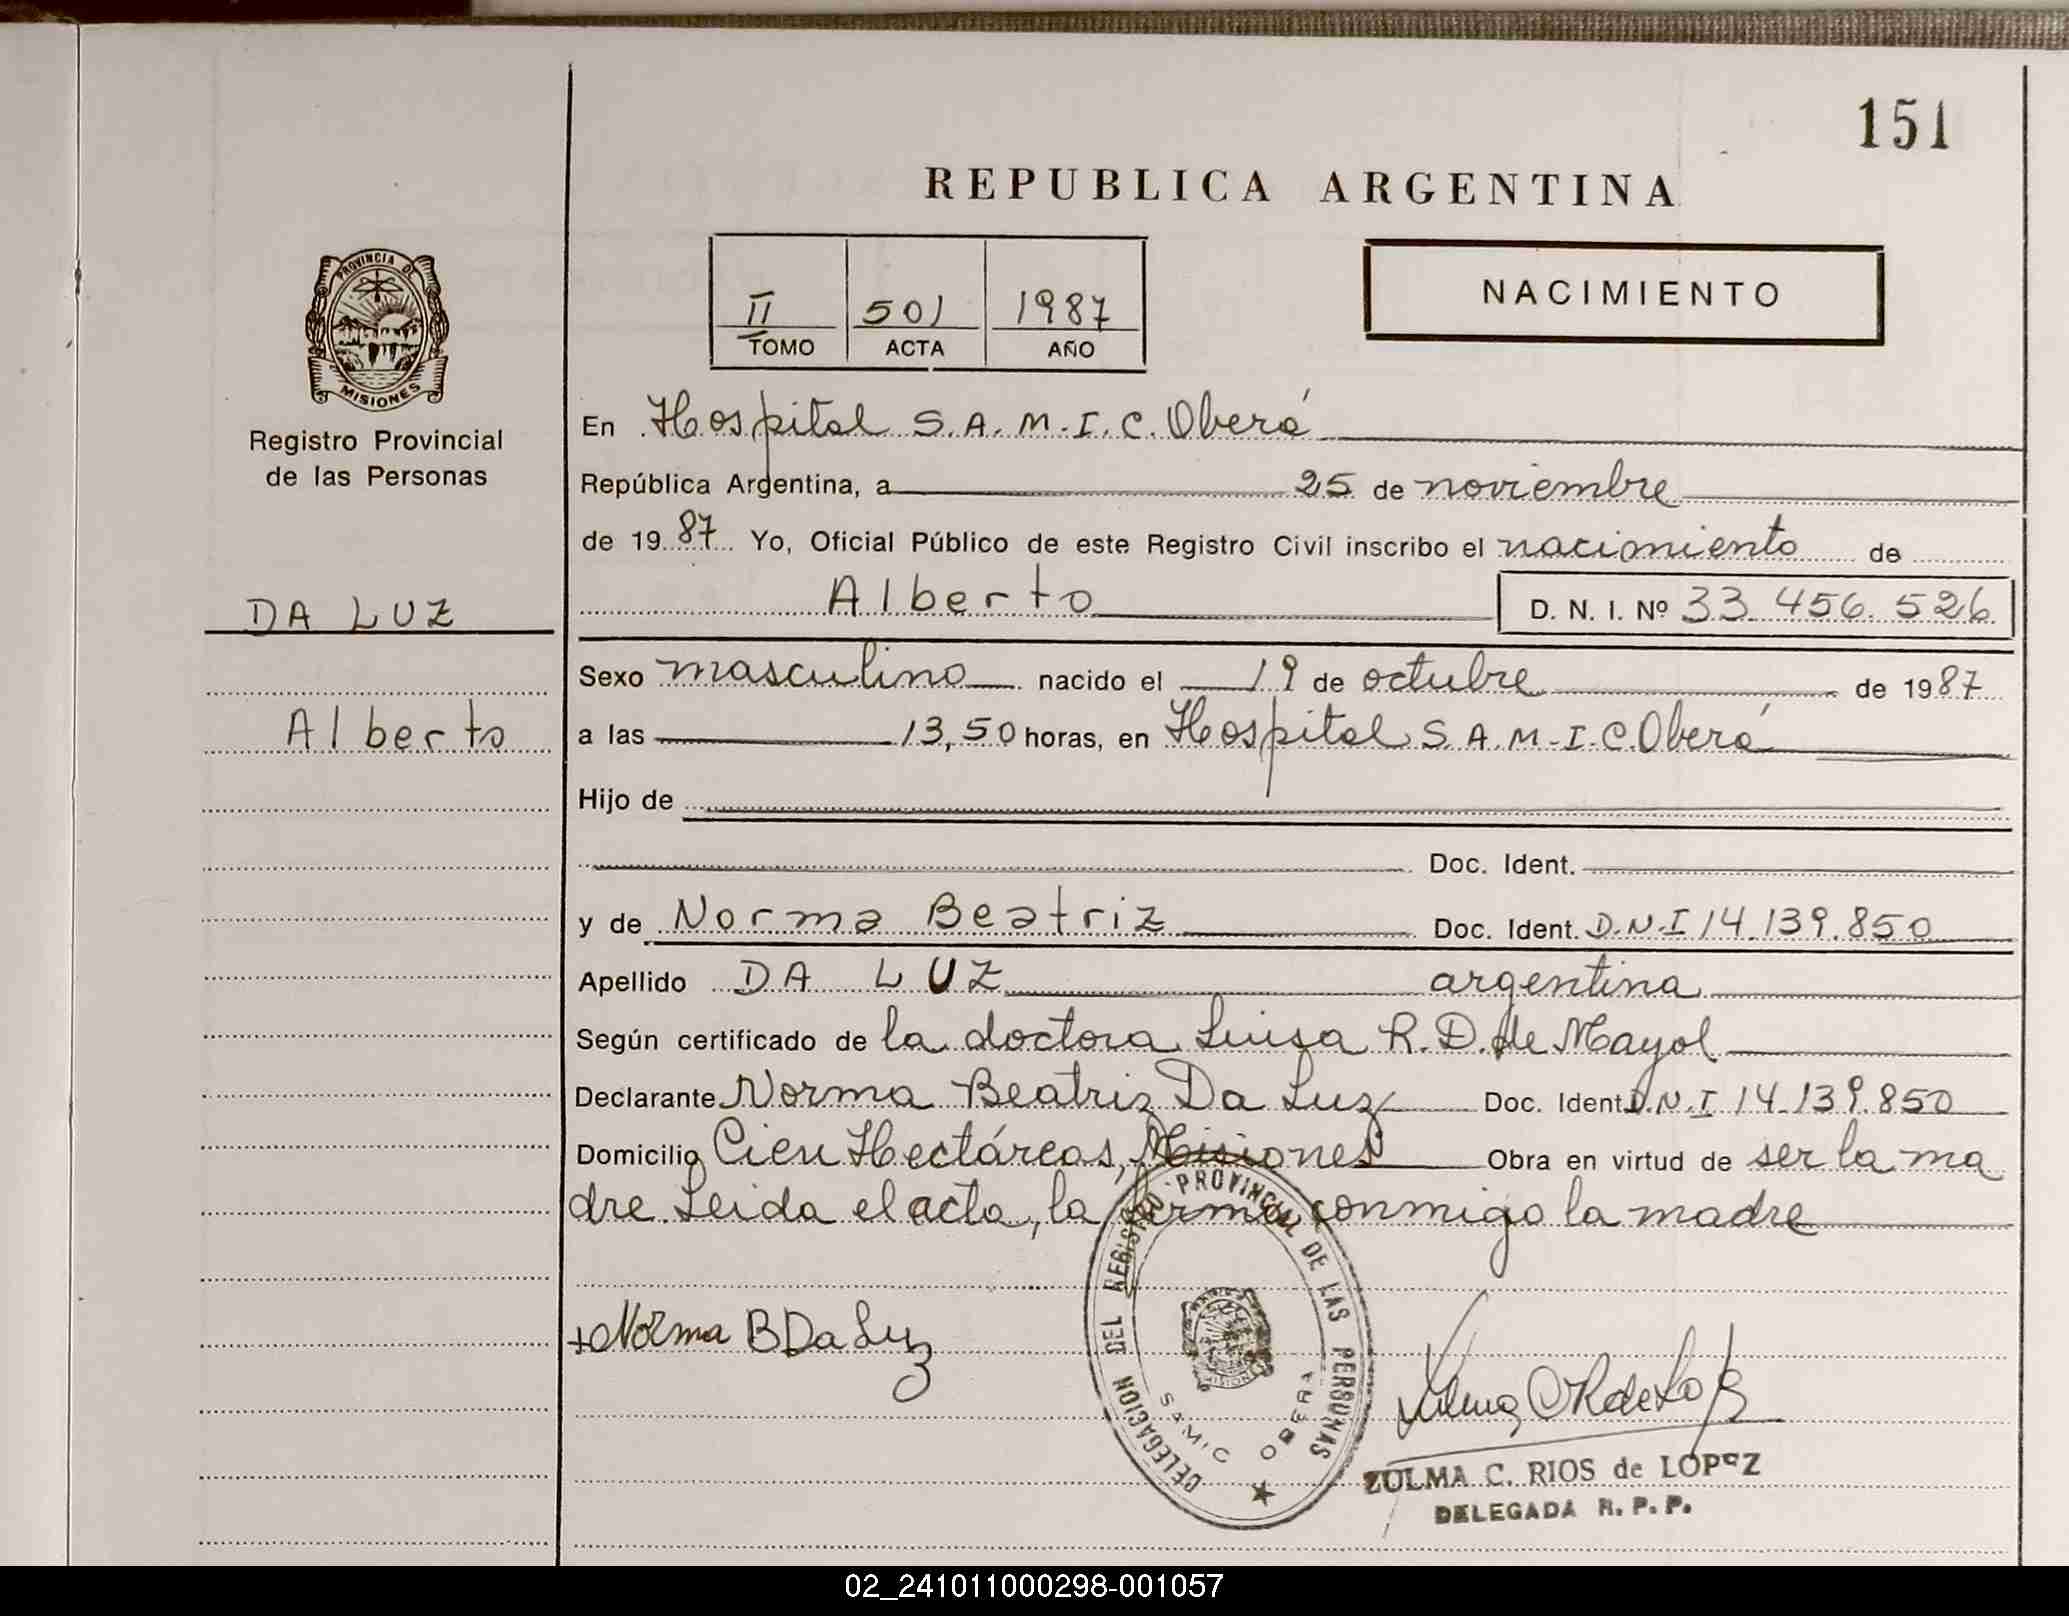 151
REPUBLICA ARGENTINA
II 501 1987
TOMO ACTA AÑO
NACIMIENTO
PROVINCIA DE
MISIONES
Registro Provincial
de las Personas
DA LUZ
Alberto
En Hospital S.A.M.I.C. Oberá
República Argentina, a 25 de noviembre
de 1987 Yo, Oficial Público de este Registro Civil inscribo el nacimiento de
Alberto D. N. I. Nº 33.456.526
Sexo masculino nacido el 19 de octubre de 1987
a las 13,50 horas, en Hospital S.A.M.I.C. Oberá
Hijo de
Doc. Ident.
y de Norma Beatriz Doc. Ident. D.N.I 14.139.850
Apellido DA LUZ argentina
Según certificado de la doctora Luisa R. D. de Mayol
Declarante Norma Beatriz Da Luz Doc. Ident. D.N.I 14.139.850
Domicilio Cien Hectáreas, Misiones Obra en virtud de ser la ma
dre. Leida el acta, la firma conmigo la madre
+ Norma B Da Luz
DELEGACION DEL REGISTRO PROVINCIAL DE LAS PERSONAS
SAMIC OBERA
MISIONES
Zulma C R de Lopez
ZULMA C. RIOS de LOPEZ
DELEGADA R. P. P.
02_241011000298-001057